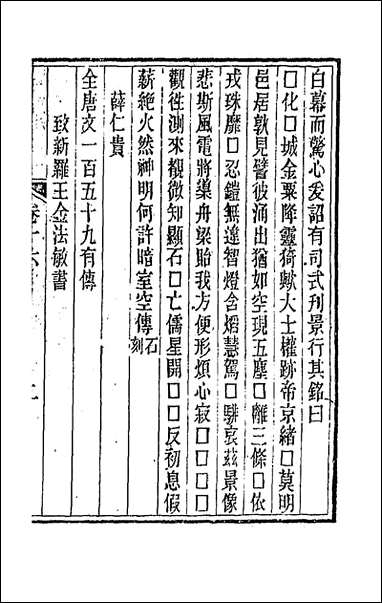 白幕而驚心爰詔有司式刋景行其銘曰
□化□城金粟降靈猗歟大士權跡帝京緒□莫明
邑居孰見譬彼涌出猶如空現五塵□離三條□依
戎珠靡□忍鎧無違智燈含熖慧駕□騑哀兹景像
悲斯風電將導舟梁貽我方便形煩心寂□□□□
觀徃測來覩微知顯石□亡儒星開□□反初息假
薪絶火然神明何許暗室空傳石刻
薛仁貴
全唐文一百五十九有傳
致新羅王金法敏書
卷十六